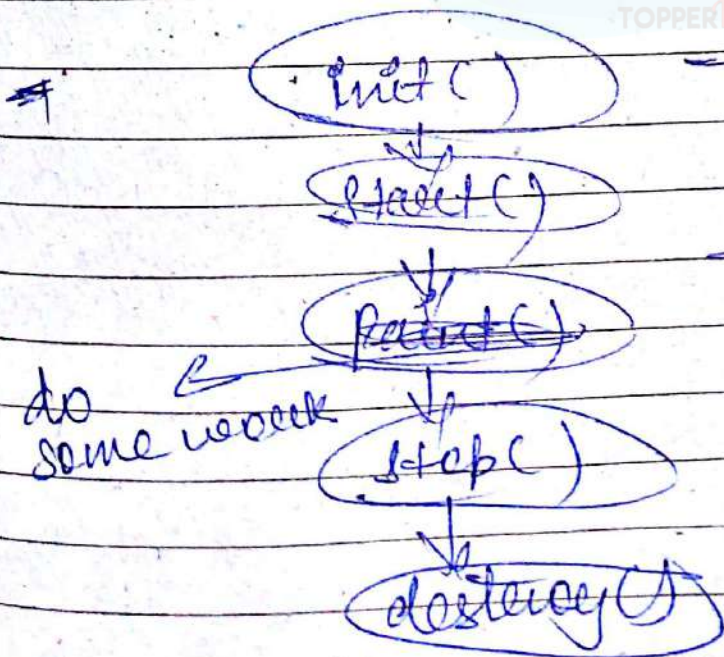 TOPPER
init()
start()
paint()
do
some work
stop()
destroy()